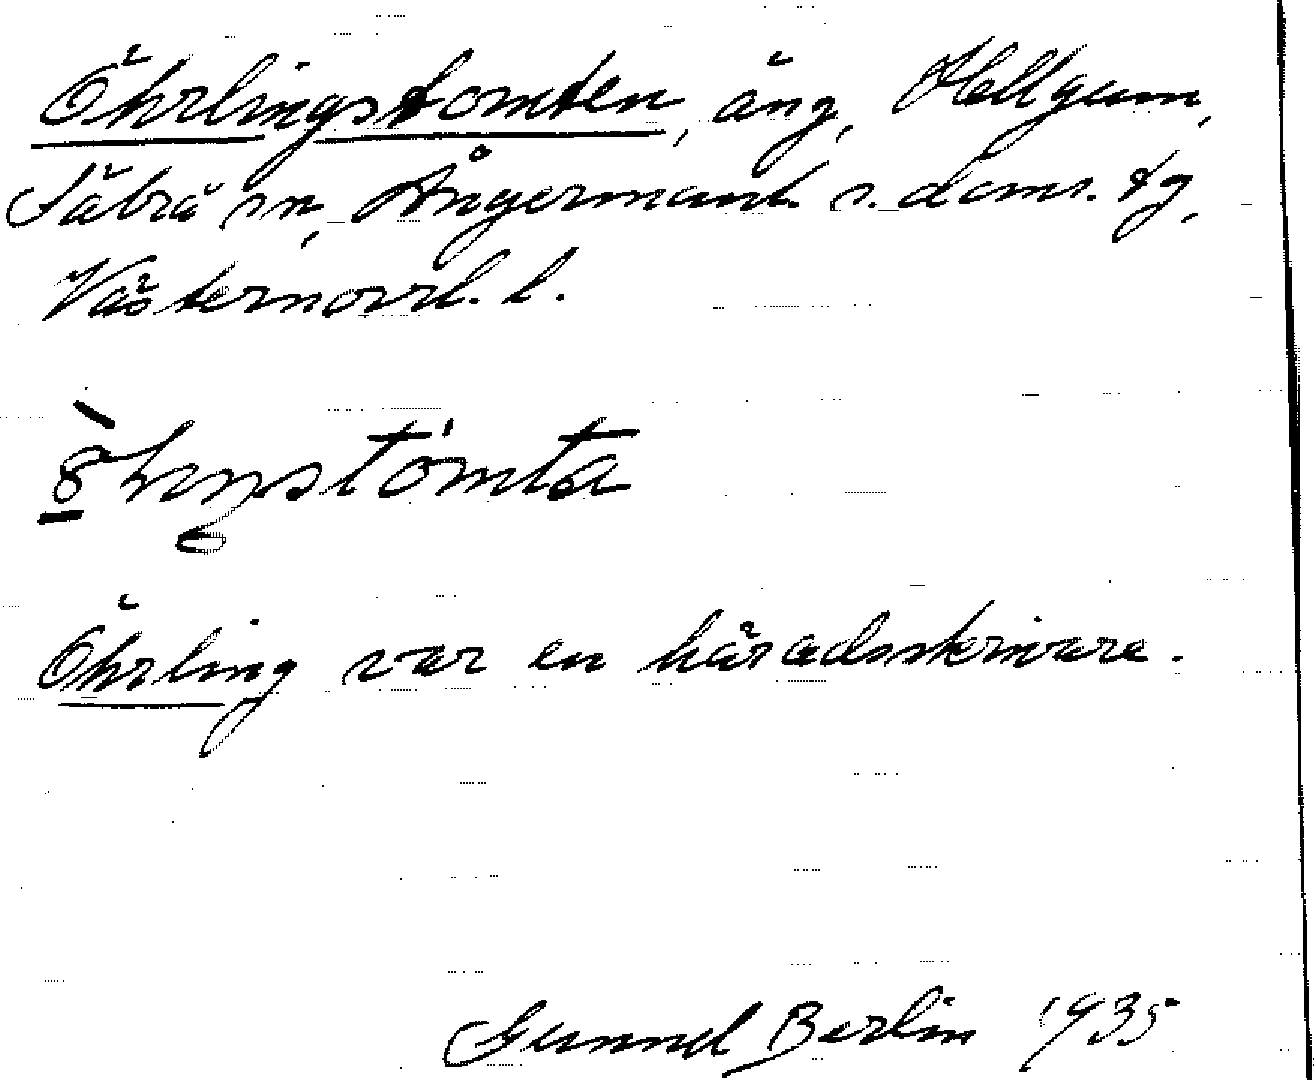 Öhrlingstomten, äng, Hellgum,
Säbrå sn, Ångermanl. s. doms. tg,
Västernorrl. l.
Öhrling var en häradsskrivare.
Gunnel Berlin 1935